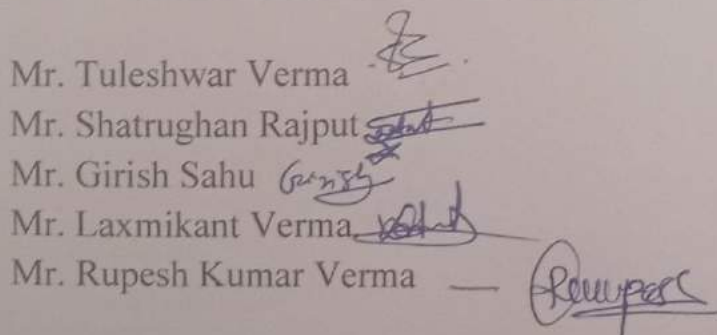 Mr. Tuleshwar Verma
Mr. Shatrughan Rajput
Mr. Girish Sahu Girish
Mr. Laxmikant Verma
Mr. Rupesh Kumar Verma —